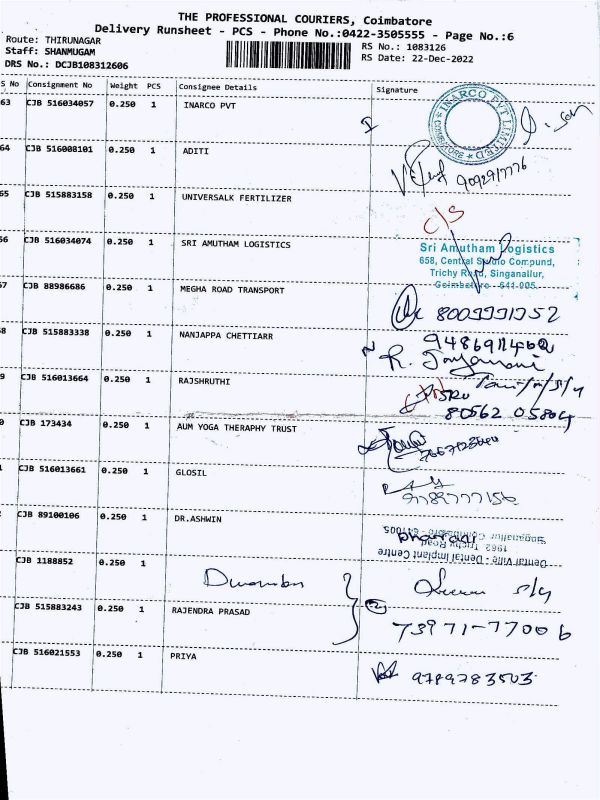 THE PROFESSIONAL COURIERS, Coimbatore
Delivery Runsheet - PCS - Phone No.:0422-3505555 - Page No.:6
Route: THIRUNAGAR
Staff: SHANMUGAM
DRS No.: DCJB108312606
RS No.: 1083126
RS Date: 22-Dec-2022
S No Consignment No Weight PCS Consignee Details Signature
63 CJB 516034057 0.250 1 INARCO PVT
INARCO PVT LIMITED
COIMBATORE
64 CJB 516008101 0.250 1 ADITI
65 CJB 515883158 0.250 1 UNIVERSALK FERTILIZER
C/S
66 CJB 516034074 0.250 1 SRI AMUTHAM LOGISTICS
Sri Amutham Logistics
658, Central Studio Compund,
Trichy Road, Singanallur,
Coimbatore - 641 005.
67 CJB 88986686 0.250 1 MEGHA ROAD TRANSPORT
8 CJB 515883338 0.250 1 NANJAPPA CHETTIARR
9 CJB 516013664 0.250 1 RAJSHRUTHI
80562 05804
0 CJB 173434 0.250 1 AUM YOGA THERAPHY TRUST
CJB 516013661 0.250 1 GLOSIL
9789777156
CJB 89100106 0.250 1 DR.ASHWIN
Dental Ville - Dental Implant Centre
1962, Trichy Road,
Singanallur, Coimbatore - 641005
CJB 1188852 0.250 1
CJB 515883243 0.250 1 RAJENDRA PRASAD
73971-77006
CJB 516021553 0.250 1 PRIYA
9789783503